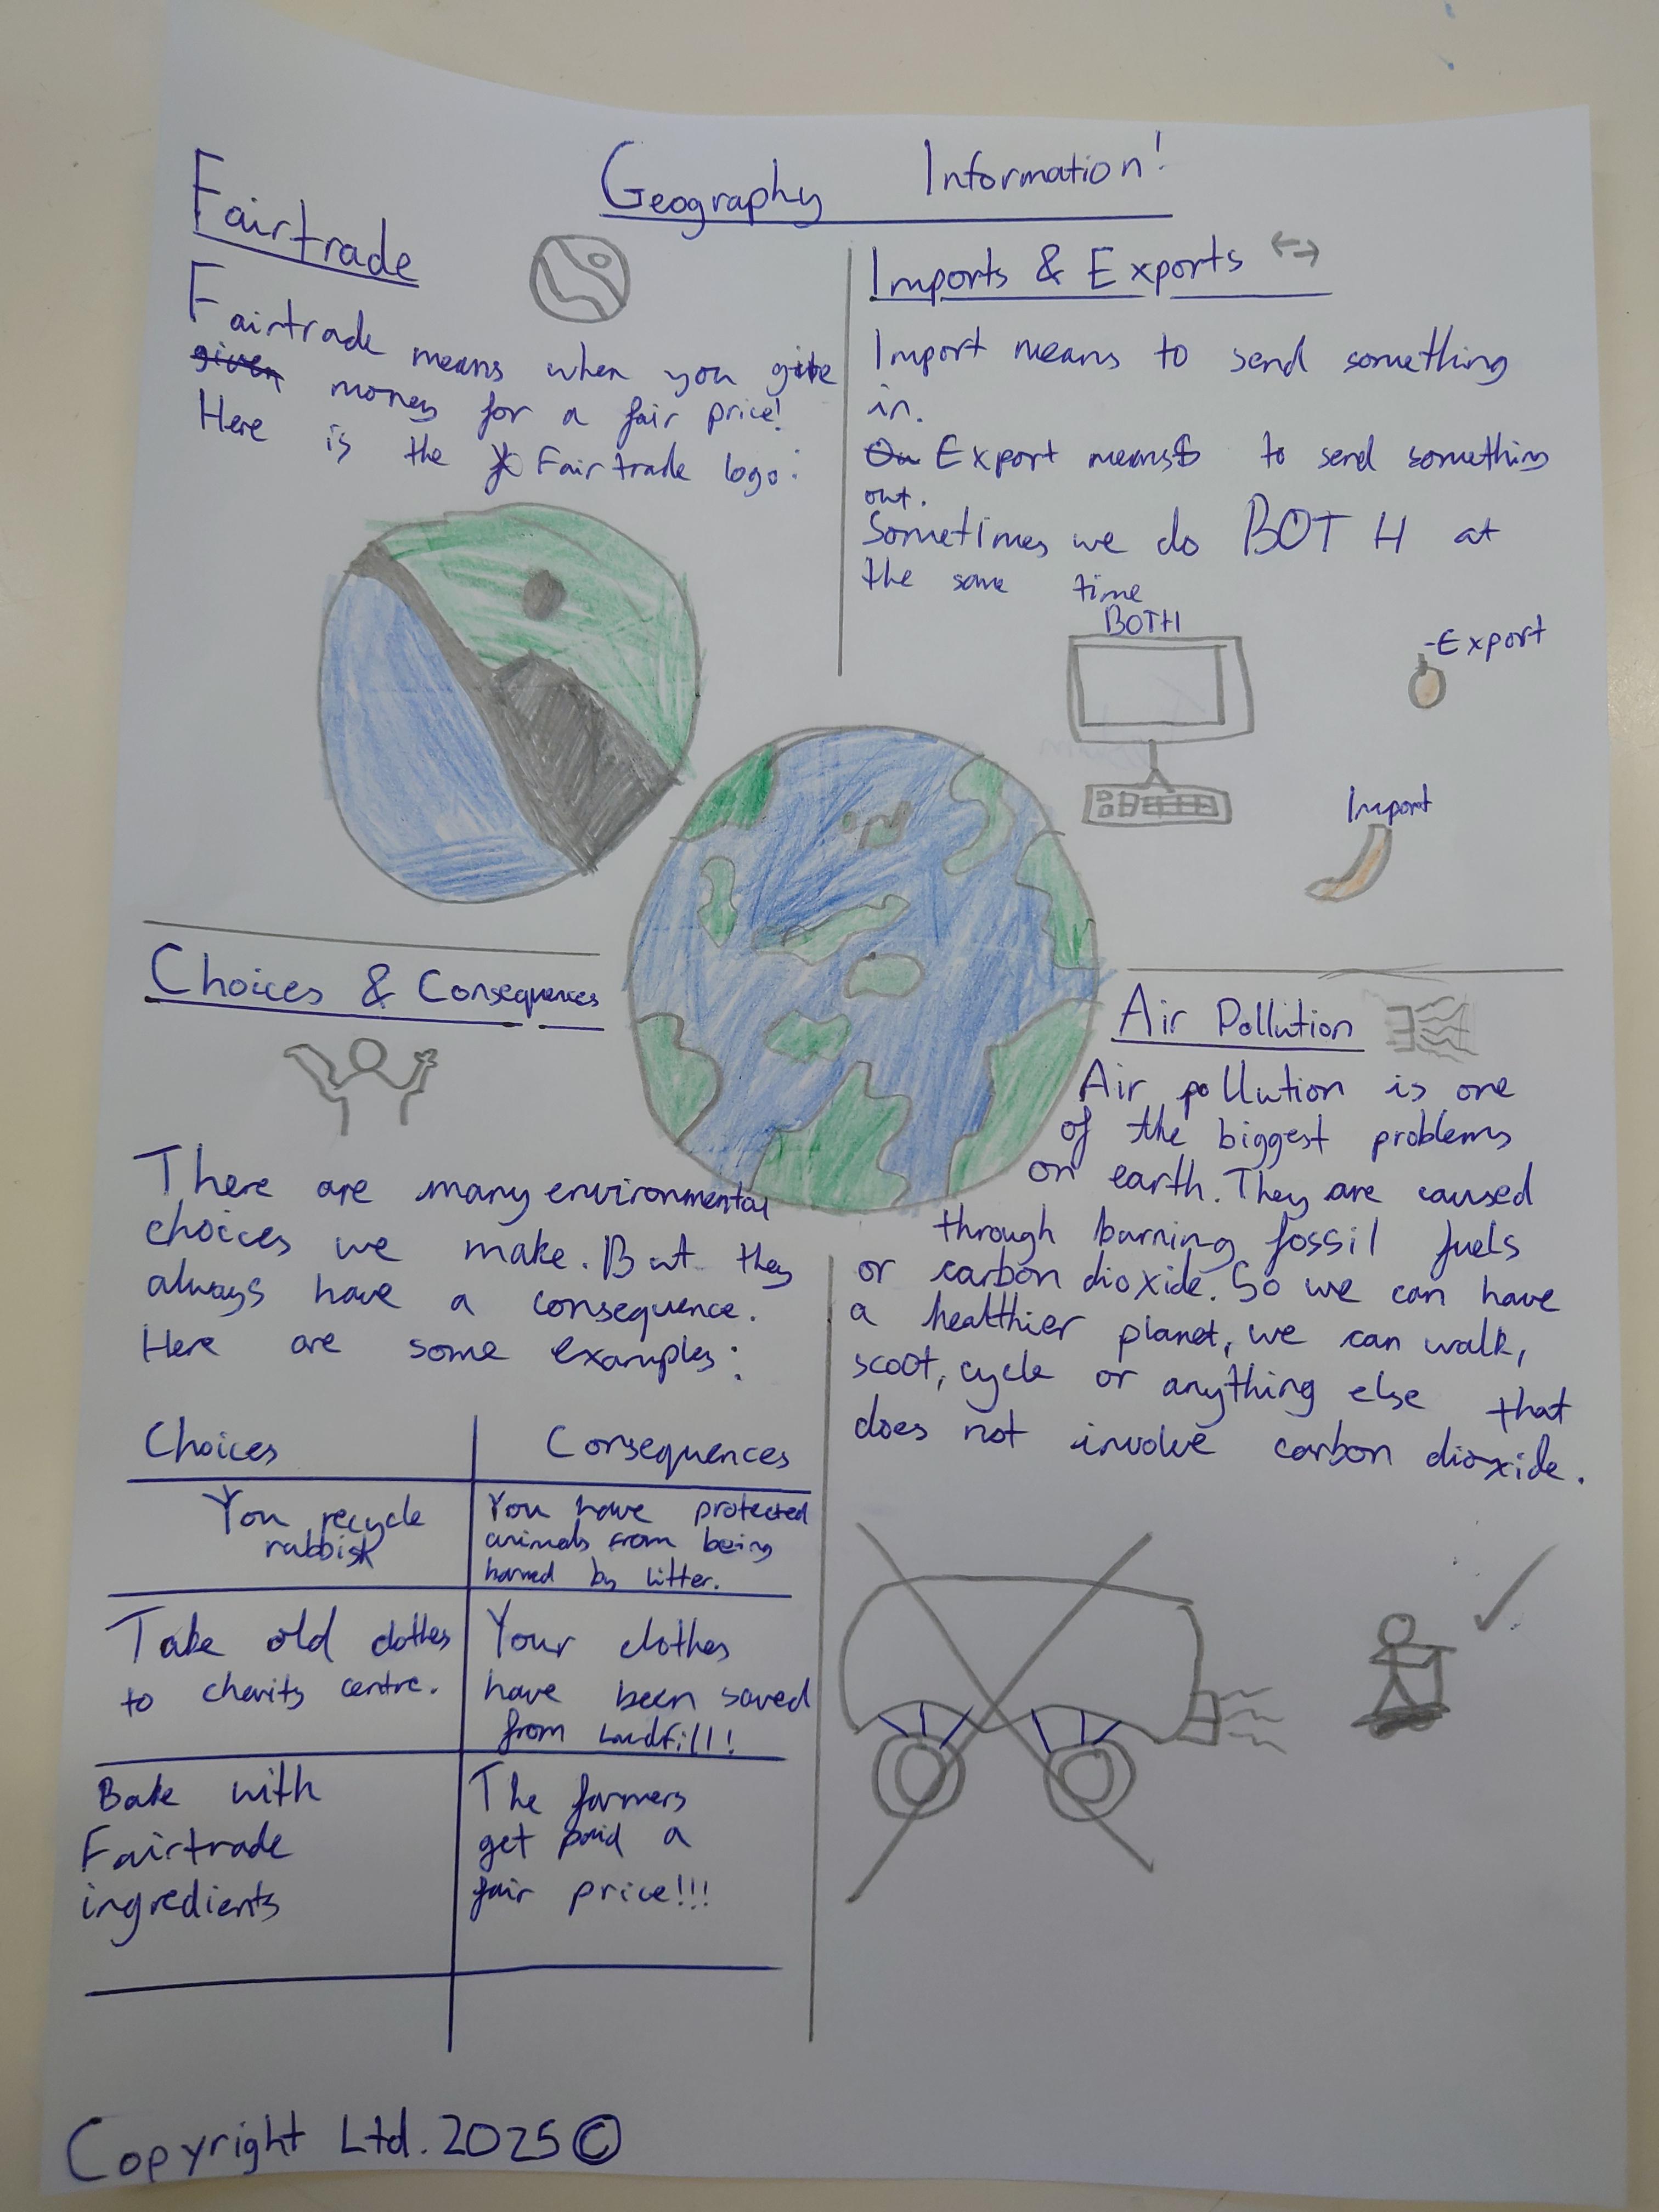 Geography Information!
Fairtrade
Fairtrade means when you give
given money for a fair price!
Here is the Fairtrade logo:
Imports & Exports ↔
Import means to send something
in.
Export means to send something
out.
Sometimes we do BOTH at
the same time
BOTH
-Export
Import
Choices & Consequences
There are many environmental
choices we make. But they
always have a consequence.
Here are some examples:
Choices
Consequences
You recycle
rubbish
You have protected
animals from being
harmed by litter.
Take old clothes
to charity centre.
Your clothes
have been saved
from landfill!
Bake with
Fairtrade
ingredients
The farmers
get paid a
fair price!!!
Air Pollution
Air pollution is one
of the biggest problems
on earth. They are caused
through burning fossil fuels
or carbon dioxide. So we can have
a healthier planet, we can walk,
scoot, cycle or anything else that
does not involve carbon dioxide.
Copyright Ltd. 2025 ©